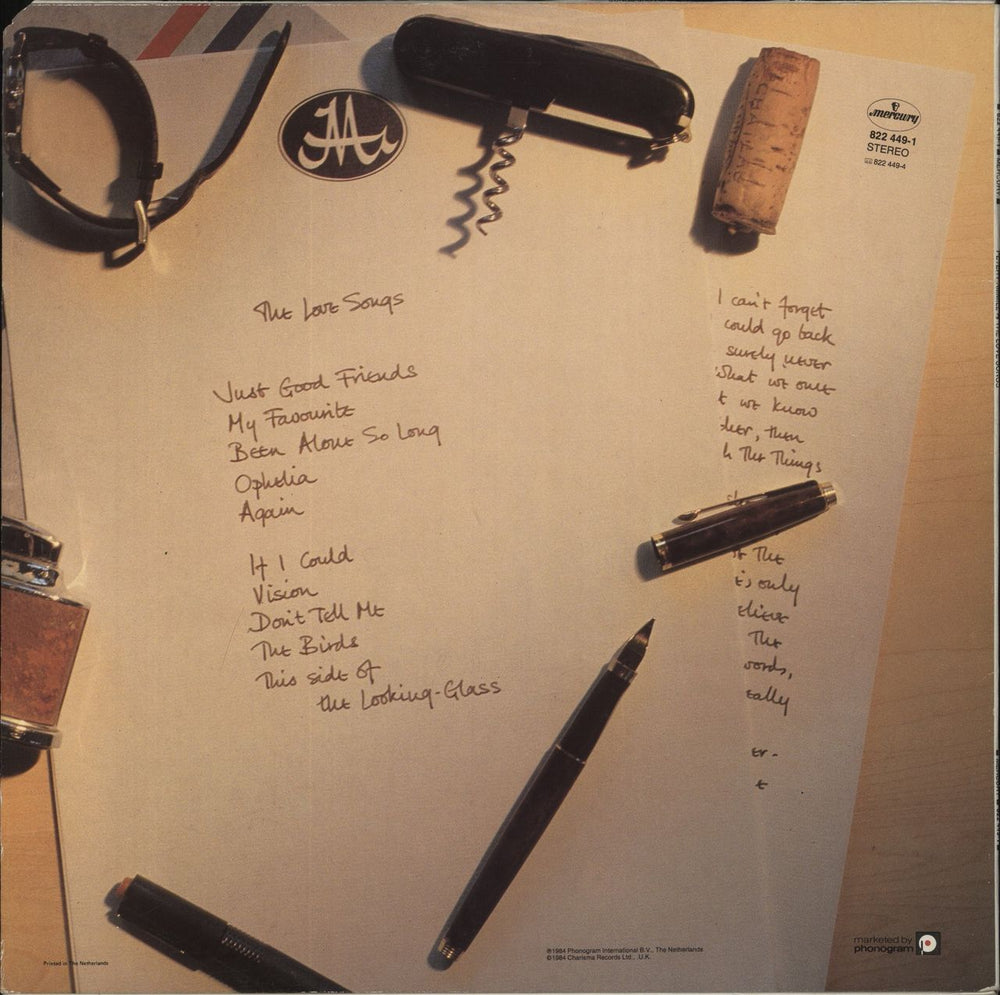 mercury
822 449-1
STEREO
822 449-4
The Love Songs
Just Good Friends
My Favourite
Been Alone So Long
Ophelia
Again
If I Could
Vision
Don't Tell Me
The Birds
This side of
the Looking-Glass
I can't forget
could go back
surely never
what we once
t we know
her, then
h The Things
The
t's only
elieve
The
words,
eally
er-
t
Printed in The Netherlands
℗1984 Phonogram International B.V., The Netherlands
©1984 Charisma Records Ltd., U.K.
marketed by
phonogram